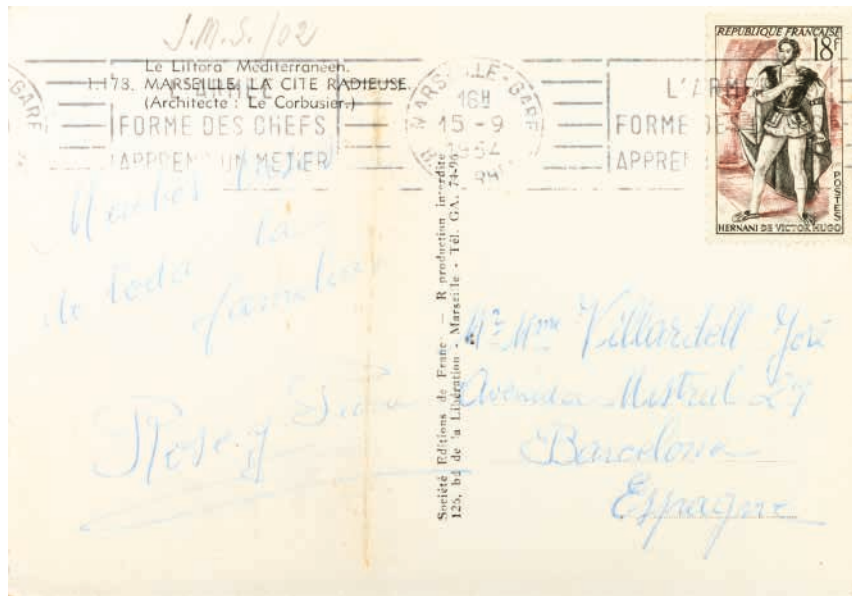 J.M.S./02
Le Littoral Méditerranéen.
1.173. MARSEILLE, LA CITE RADIEUSE.
(Architecte : Le Corbusier.)
L'ARMÉE
FORME DES CHEFS
APPREND UN METIER
MARSEILLE-GARE
16H
15 - 9
1954
L'ARMÉE
FORME DES
APPREN
REPUBLIQUE FRANÇAISE
18F
POSTES
HERNANI DE VICTOR HUGO
de toda la
familia
Rose y
Société Editions de France — Reproduction interdite
126, bd de la Libération - Marseille - Tél. GA. 74-96
Mr Mme Villardell José
Avenida Mistral 27
Barcelona
Espagne